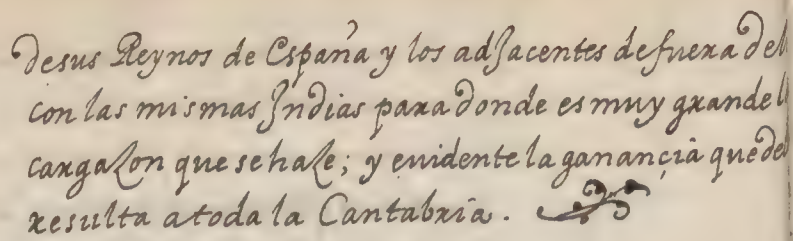 desus Reynos de España y los adJacentes defuera del
con las mismas Indias para donde es muy grande l
cargaZon que sehaZe; y euidente la ganançia que de
resulta atoda la Cantabria.